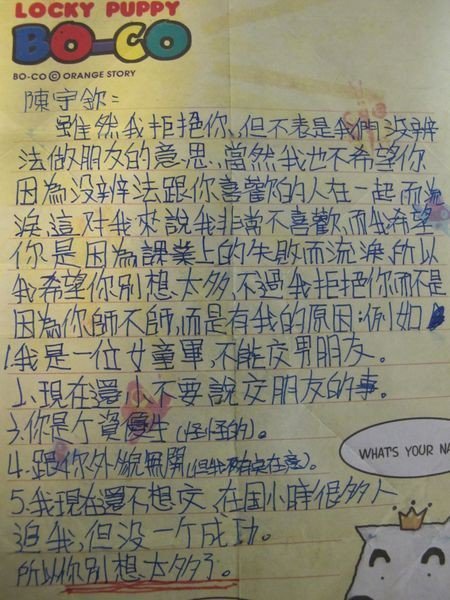 LOCKY PUPPY
BO-CO
BO-CO © ORANGE STORY
陳守欽:
雖然我拒絕你,但不表是我們沒辨
法做朋友的意思、當然我也不希望你
因為没辨法跟你喜歡的人在一起而流
淚、這对我來說我非常不喜歡、而我希望
你是因為課業上的失敗而流淚、所以
我希望你別想太多、不過我拒絕你而不是
因為你師不師,而是有我的原因:例如
1.我是一位女童畢,不能交男朋友。
2、現在還小不要說交朋友的事。
3.你是个資優生(怪怪的)。
4.跟你外貌無關(但我有在意)。
5.我現在還不想交,在国小時很多人
追我,但没一个成功。
所以你別想太多了。
WHAT'S YOUR NA